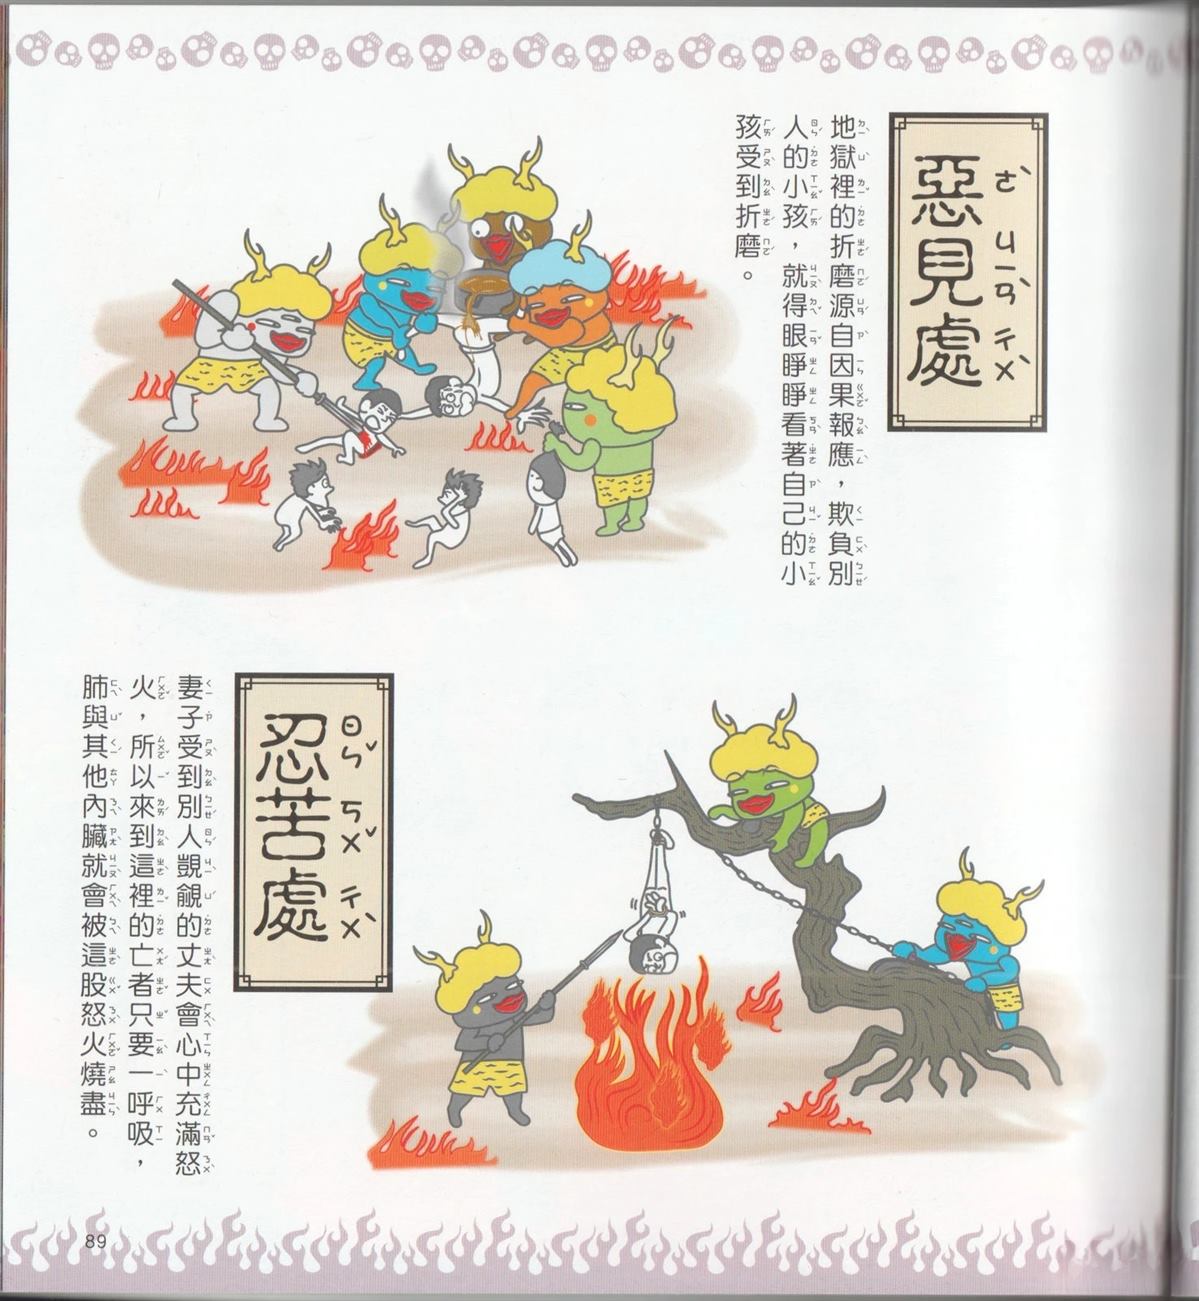 惡見處
ㄜˋ ㄐㄧㄢˋ ㄔㄨˋ
地獄裡的折磨源自因果報應，欺負別
人的小孩，就得眼睜睜看著自己的小
孩受到折磨。
忍苦處
ㄖㄣˇ ㄎㄨˇ ㄔㄨˋ
妻子受到別人覬覦的丈夫會心中充滿怒
火，所以來到這裡的亡者只要一呼吸，
肺與其他內臟就會被這股怒火燒盡。
89